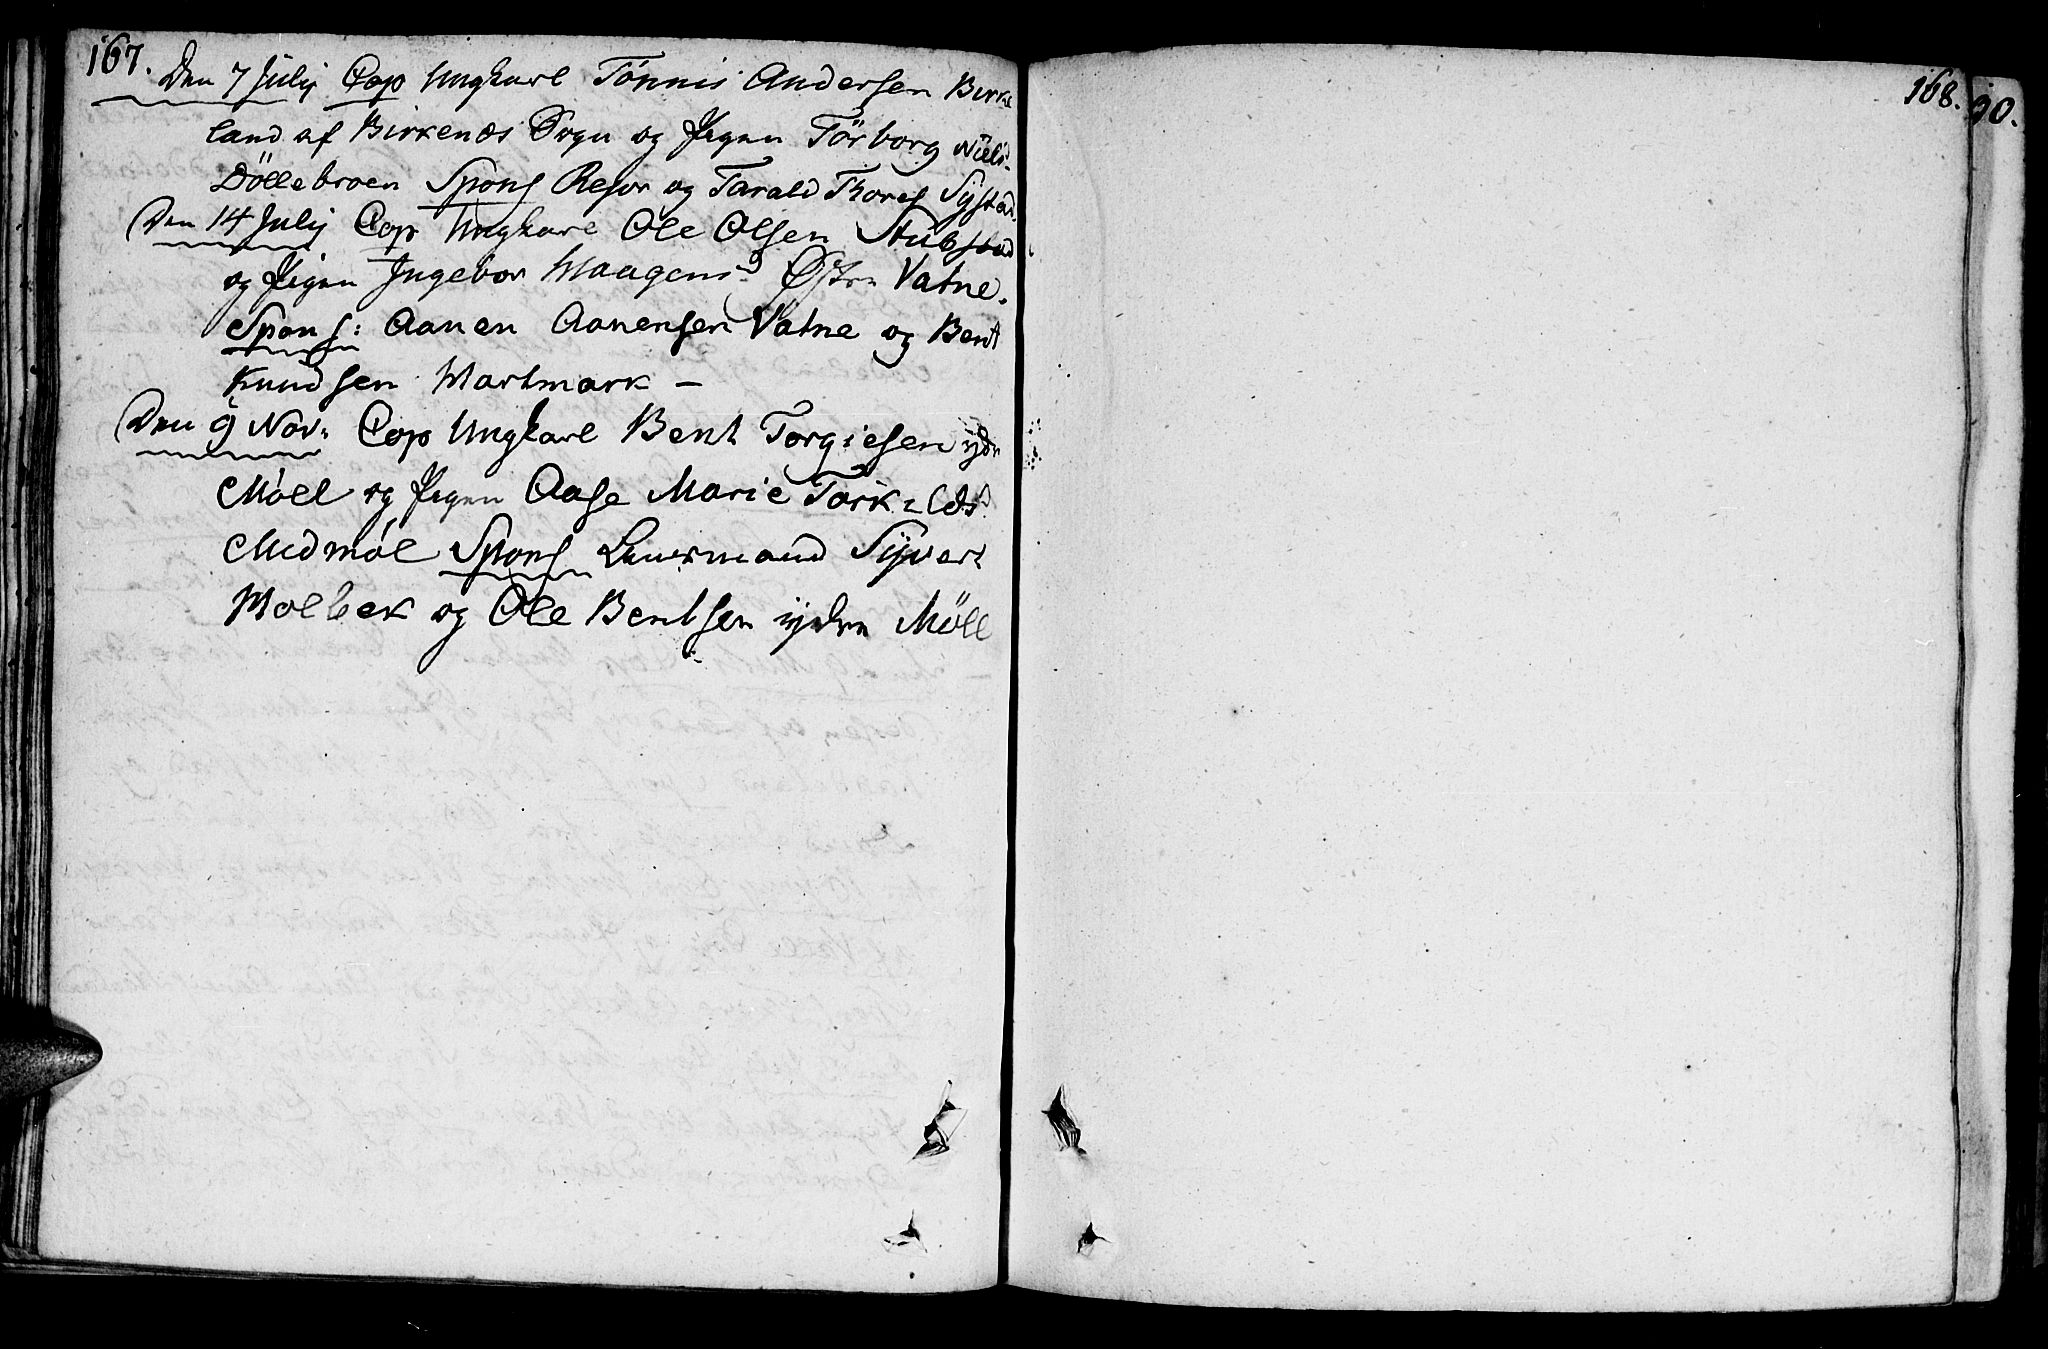 167.
Den 7 Julij Cop Ungkarl Tönnis Andersen Birke
land af Birkenæs Sogn og Pigen Törborg Niels
Döllebroen Spons Resor og Tarald Thores Systad.
Den 14 Julij Cop Ungkarl Ole Olsen Stubstad
og Pigen Ingebor Maagensd Østre Vatne.
Spons: Aanen Aanensen Vatne og Bent
Knudsen Martmark –
Den 9 Nov: Cop Ungkarl Bent Torgiesen ydre
Möll og Pigen Aase Marie Tork=lds
Midmöl Spons Syvert
Molbek og Ole Bentsen ijdre Möll
168.
90.